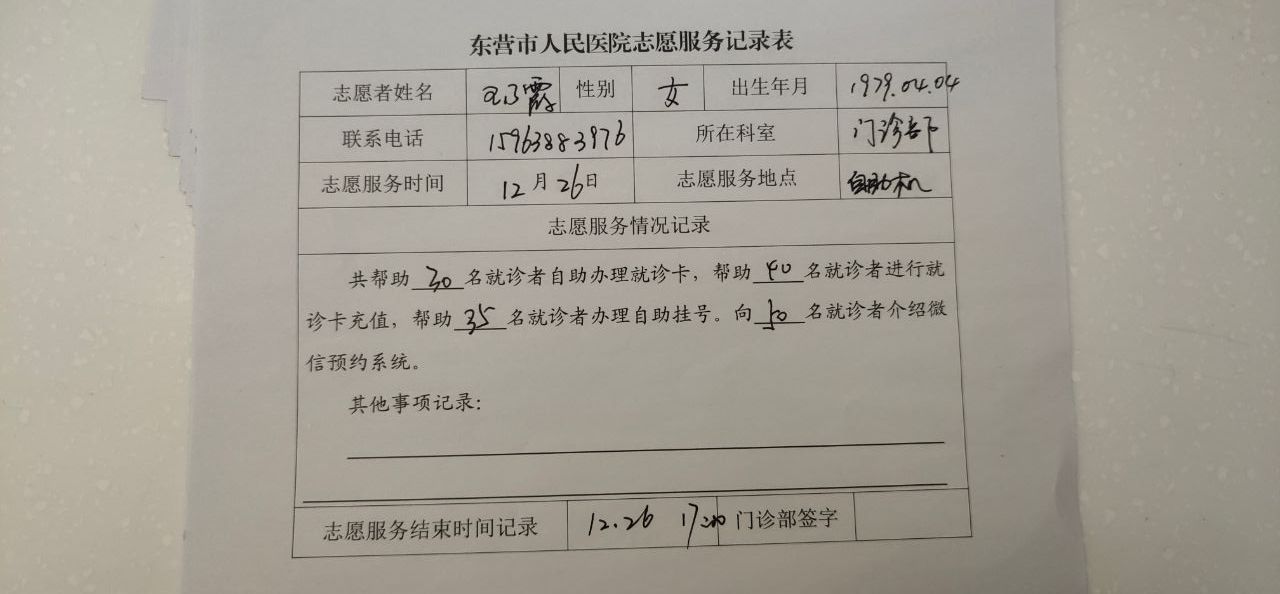 东营市人民医院志愿服务记录表
志愿者姓名 霞 性别 女 出生年月 1979.04.04
联系电话 15963883976 所在科室 门诊部
志愿服务时间 12月26日 志愿服务地点 自助机
志愿服务情况记录
共帮助30名就诊者自助办理就诊卡，帮助40名就诊者进行就
诊卡充值，帮助35名就诊者办理自助挂号。向50名就诊者介绍微
信预约系统。
其他事项记录：
志愿服务结束时间记录 12.26 17:00 门诊部签字